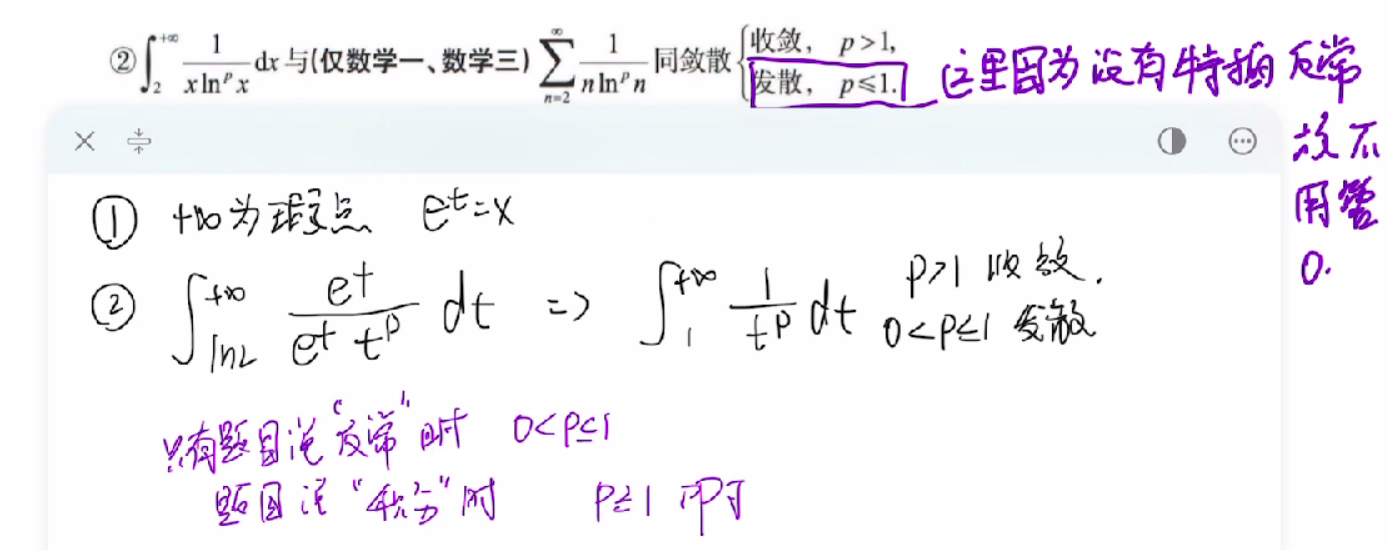 ②∫₂^{+∞} 1/(x ln^p x) dx 与(仅数学一、数学三) ∑_{n=2}^{∞} 1/(n ln^p n) 同敛散 {收敛, p>1, 发散, p⩽1.
这里因为没有特指反常
故不
用管
0.
① +∞为瑕点 e^t=x
② ∫_{ln2}^{+∞} e^t/(e^t t^p) dt => ∫_1^{+∞} 1/t^p dt p>1 收敛.
0<p≤1 发散
只有题目说“反常”时 0<p≤1
题目说“积分”时 p≤1 即可